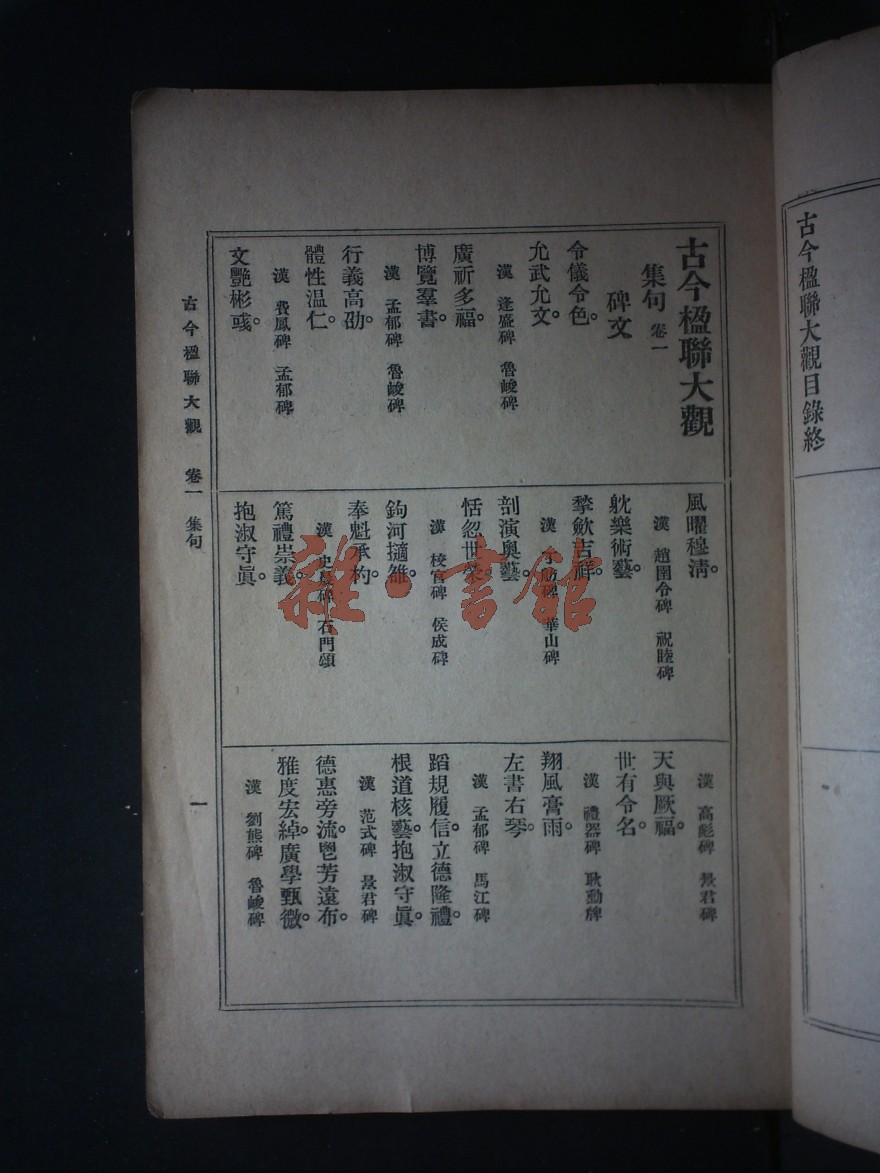 古今楹聯大觀目錄終
古今楹聯大觀
集句 卷一
碑文
令儀令色。
允武允文。
漢 逢盛碑 魯峻碑
廣祈多福。
博覽羣書。
漢 孟郁碑 魯峻碑
行義高劭。
體性温仁。
漢 費鳳碑 孟郁碑
文艷彬彧。
風曜穆清。
漢 趙圉令碑 祝睦碑
躭樂術藝。
犂歛吉祥。
漢 碑 華山碑
剖演奧藝。
恬忽世榮。
漢 校官碑 侯成碑
鉤河擿雒。
奉魁承杓。
漢 史晨碑 石門頌
篤禮崇義。
抱淑守眞。
漢 高彪碑 景君碑
天與厥福。
世有令名。
漢 禮器碑 耿勳碑
翔風膏雨。
左書右琴。
漢 孟郁碑 馬江碑
蹈規履信。立德隆禮。
根道核藝。抱淑守眞。
漢 范式碑 景君碑
德惠旁流。鬯芳遠布。
雅度宏綽。廣學甄微。
漢 劉熊碑 魯峻碑
古今楹聯大觀 卷一 集句 一
雜·書館